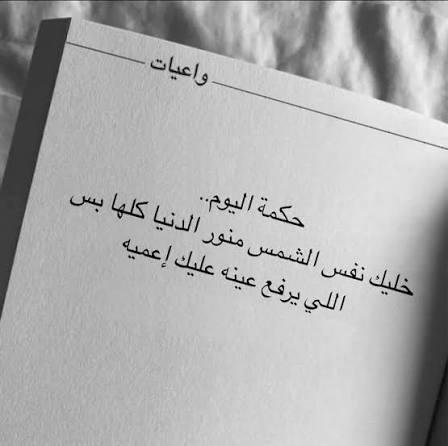 واعيات
حكمة اليوم..
خليك نفس الشمس منور الدنيا كلها بس
اللي يرفع عينه عليك إعميه